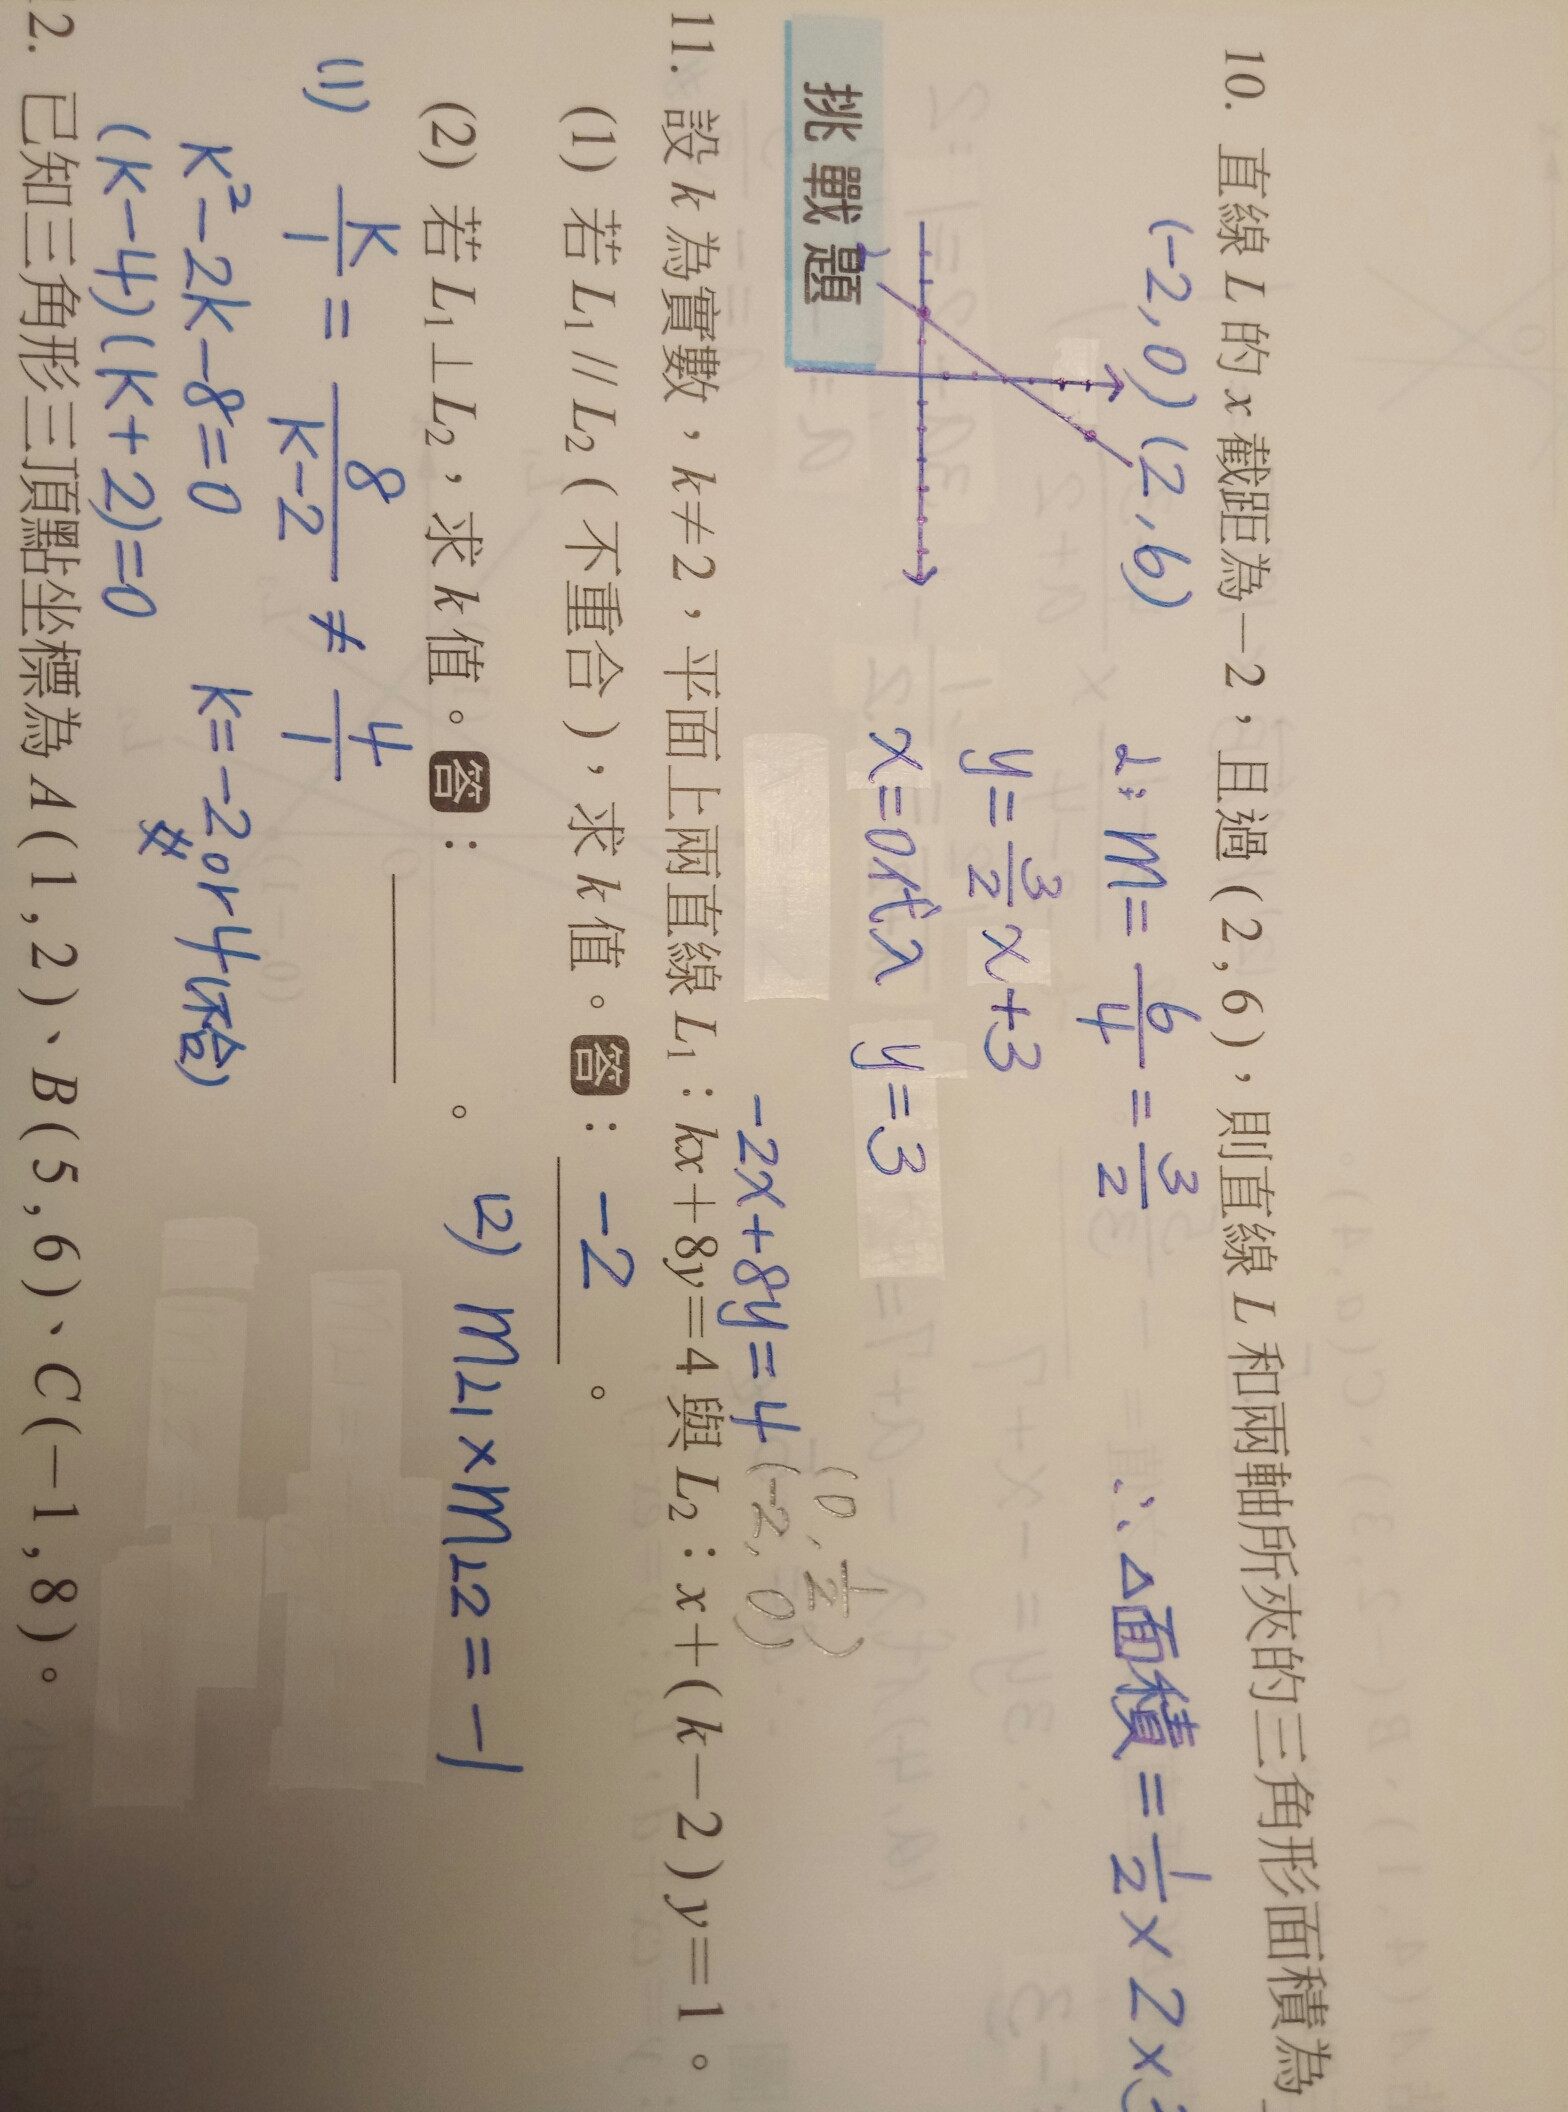 10. 直線 L 的 x 截距為-2，且過(2,6)，則直線 L 和兩軸所夾的三角形面積為
(-2,0)(2,6) L: m=6/4=3/2 ∴△面積=1/2×2×3
y=3/2x+3
x=0代入 y=3
挑戰題
-2x+8y=4 (0,1/2)
(-2,0)
11. 設 k 為實數，k≠2，平面上兩直線 L₁：kx+8y=4 與 L₂：x+(k-2)y=1。
(1) 若 L₁//L₂(不重合)，求 k 值。答：-2。
(2) 若 L₁⊥L₂，求 k 值。答：＿＿＿。
(2) mL1×mL2=-1
(1) k/1=8/k-2≠4/1
k²-2k-8=0 k=-2or4(不合)
#
(k-4)(k+2)=0
2. 已知三角形三頂點坐標為 A(1,2)、B(5,6)、C(-1,8)。